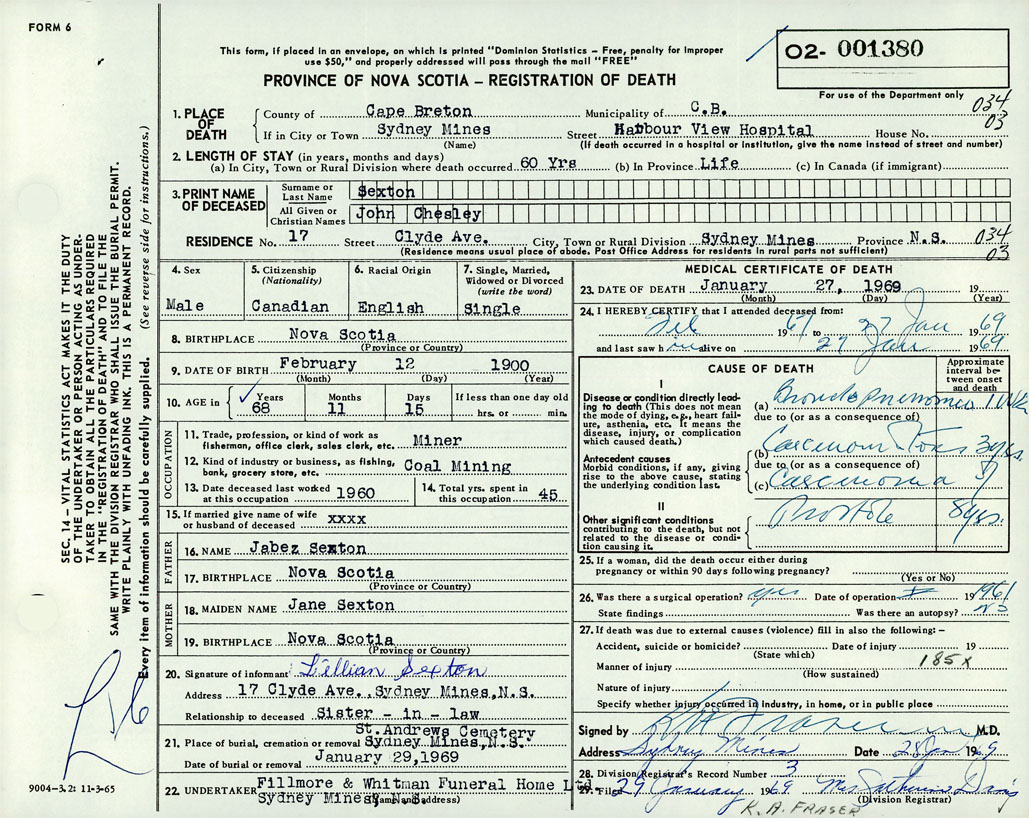 FORM 6
This form, if placed in an envelope, on which is printed "Dominion Statistics – Free, penalty for improper
use $50," and properly addressed will pass through the mail "FREE"
O2- 001380
For use of the Department only
PROVINCE OF NOVA SCOTIA – REGISTRATION OF DEATH
034
03
1. PLACE OF DEATH
County of Cape Breton Municipality of C.B.
If in City or Town Sydney Mines Street Harbour View Hospital House No.
(Name) (If death occurred in a hospital or institution, give the name instead of street and number)
2. LENGTH OF STAY (in years, months and days)
(a) In City, Town or Rural Division where death occurred 60 Yrs (b) In Province Life (c) In Canada (if immigrant)
3. PRINT NAME OF DECEASED
Surname or Last Name Sexton
All Given or Christian Names John Chesley
RESIDENCE No. 17 Street Clyde Ave. City, Town or Rural Division Sydney Mines Province N.S. 034
(Residence means usual place of abode. Post Office Address for residents in rural parts not sufficient) 03
4. Sex
Male
5. Citizenship
(Nationality)
Canadian
6. Racial Origin
English
7. Single, Married,
Widowed or Divorced
(write the word)
Single
8. BIRTHPLACE Nova Scotia
(Province or Country)
9. DATE OF BIRTH February 12 1900
(Month) (Day) (Year)
10. AGE in Years Months Days If less than one day old
68 11 15 hrs. or min.
OCCUPATION
11. Trade, profession, or kind of work as
fisherman, office clerk, sales clerk, etc. Miner
12. Kind of industry or business, as fishing,
bank, grocery store, etc. Coal Mining
13. Date deceased last worked
at this occupation 1960
14. Total yrs. spent in
this occupation 45
15. If married give name of wife
or husband of deceased xxxx
FATHER
16. NAME Jabez Sexton
17. BIRTHPLACE Nova Scotia
(Province or Country)
MOTHER
18. MAIDEN NAME Jane Sexton
19. BIRTHPLACE Nova Scotia
(Province or Country)
20. Signature of informant Lillian Sexton
Address 17 Clyde Ave. Sydney Mines, N.S.
Relationship to deceased Sister - in - law
St. Andrews Cemetery
21. Place of burial, cremation or removal Sydney Mines, N.S.
Date of burial or removal January 29, 1969
22. UNDERTAKER Fillmore & Whitman Funeral Home Ltd.
Sydney Mines N.S.
(Name and address)
MEDICAL CERTIFICATE OF DEATH
23. DATE OF DEATH January 27, 1969 19
(Month) (Day) (Year)
24. I HEREBY CERTIFY that I attended deceased from:
1967 to 27 Jan 1969
and last saw him alive on 27 Jan 1969
CAUSE OF DEATH
Approximate
interval be-
tween onset
and death
I
Disease or condition directly lead-
ing to death (This does not mean
the mode of dying, e.g., heart fail-
ure, asthenia, etc. It means the
disease, injury, or complication
which caused death.)
(a) Broncho pneumonia 1 Wk
due to (or as a consequence of)
Antecedent causes
Morbid conditions, if any, giving
rise to the above cause, stating
the underlying condition last.
(b) 3 yrs.
due to (or as a consequence of)
(c) Carcinoma
II
Other significant conditions
contributing to the death, but not
related to the disease or condi-
tion causing it.
Prostate 8 yrs.
25. If a woman, did the death occur either during
pregnancy or within 90 days following pregnancy?
(Yes or No)
26. Was there a surgical operation? yes Date of operation 1961
State findings Was there an autopsy? No
27. If death was due to external causes (violence) fill in also the following:–
Accident, suicide or homicide? Date of injury 19
(State which)
Manner of injury 185 X
(How sustained)
Nature of injury
Specify whether injury occurred in industry, in home, or in public place
Signed by K A Fraser M.D.
Address Sydney Mines Date 28 Jan 1969
28. Division Registrar's Record Number 3
29. Filed 29 January 1969 Mrs
(Division Registrar)
K. A. FRASER
SEC. 14 – VITAL STATISTICS ACT MAKES IT THE DUTY
OF THE UNDERTAKER OR PERSON ACTING AS UNDER-
TAKER TO OBTAIN ALL THE PARTICULARS REQUIRED
IN THE "REGISTRATION OF DEATH" AND TO FILE THE
SAME WITH THE DIVISION REGISTRAR WHO SHALL ISSUE THE BURIAL PERMIT.
WRITE PLAINLY WITH UNFADING INK. THIS IS A PERMANENT RECORD.
Every item of information should be carefully supplied. (See reverse side for instructions.)
9004–3.2: 11-3-65